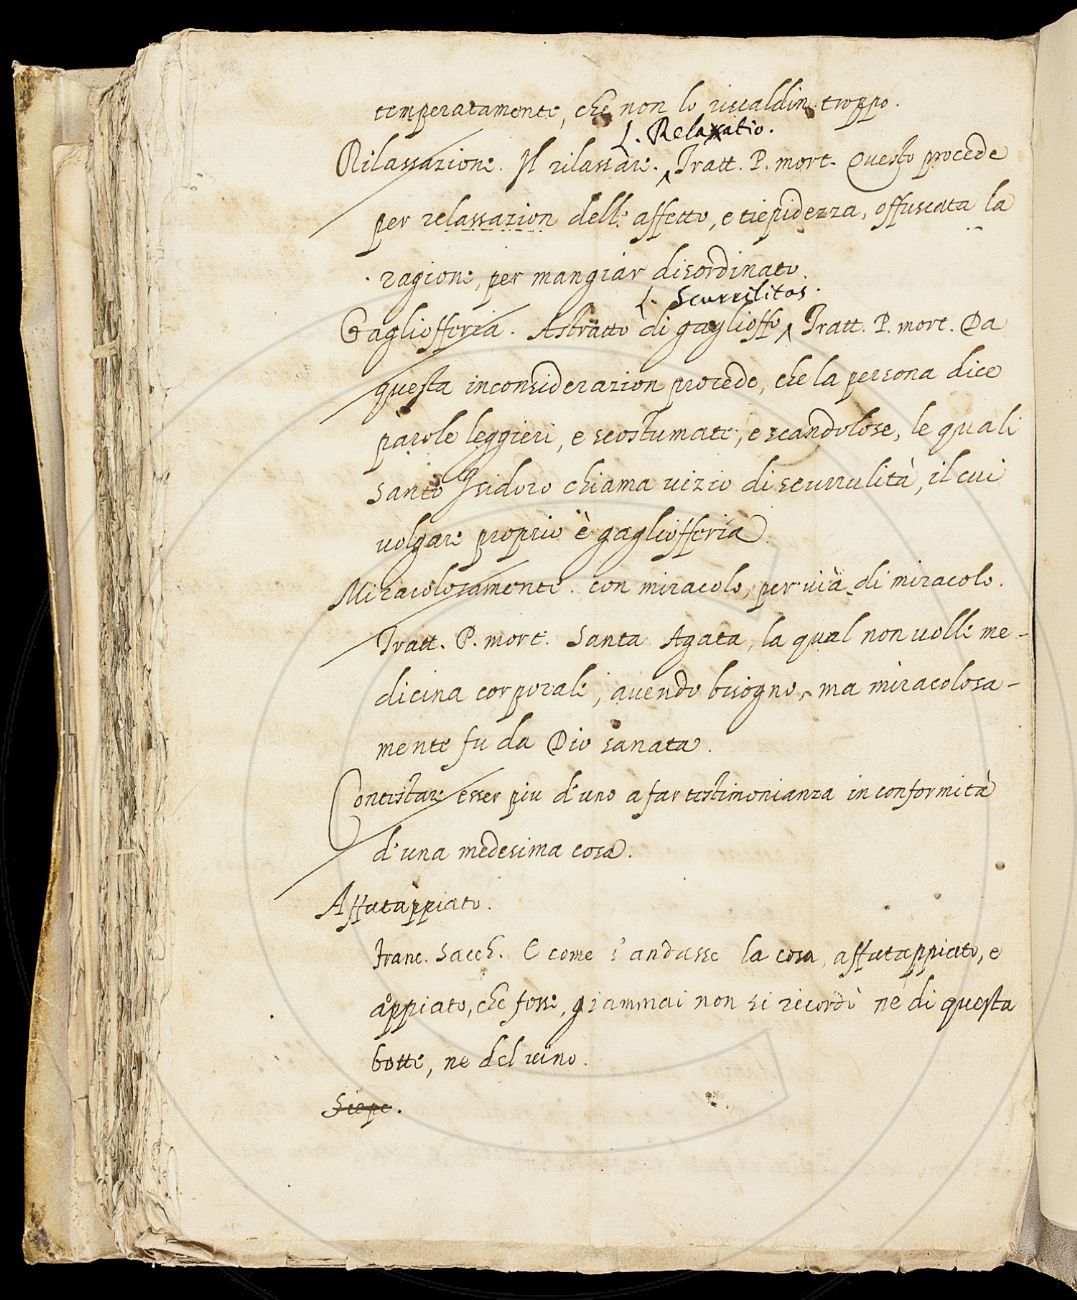 temperatamente, che non lo riscaldin troppo.
L. Relaxatio.
Rilassazione. Il rilassare. Tratt. P. mort. Questo procede
per relassazion dell' affetto, e tiepidezza, offuscata la
ragione, per mangiar disordinato.
L. Scurrilitas.
Gaglioffería. Astratto di gaglioffo, Tratt. P. mort. Da
questa inconsiderazion procede, che la persona dice
parole leggieri, e scostumate, e scandolose, le quali
Santo Isidoro chiama vizio di scurrulità, il cui
volgare proprio è gagliofferia.
Miracolosamente. con miracolo, per via di miracolo.
Tratt. P. mort. Santa Agata, la qual non volle me-
dicina corporale, avendo bisogno, ma miracolosa-
mente fu da Dio sanata.
Contestare esser piu d'uno a far testimonianza in conformità
d'una medesima cosa.
Affatappiato.
Franc. Sacch. E come s'andasse la cosa, affatappiato, e
appiato, che fosse, giammai non si ricordò ne di questa
botte, ne del vino.
Siepe.